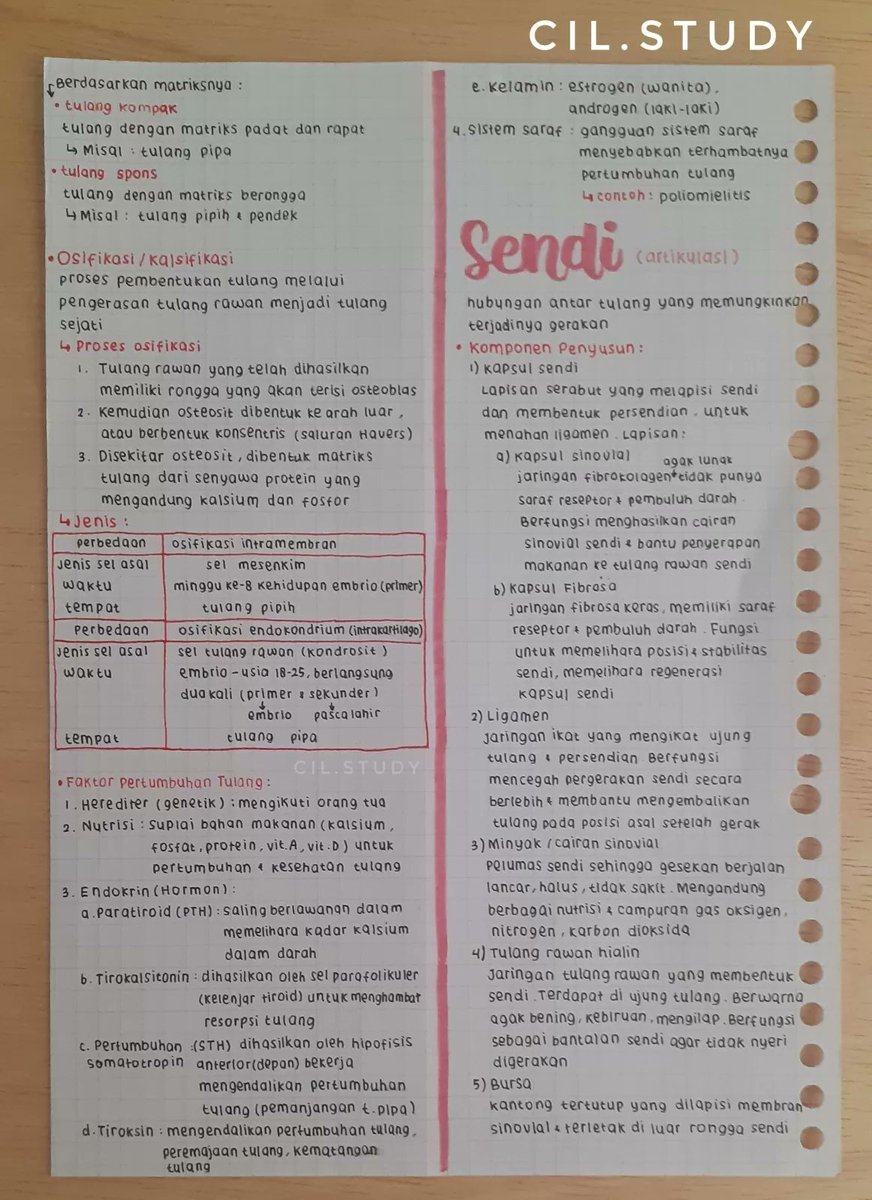 CIL.STUDY
Berdasarkan matriksnya :
• tulang kompak
tulang dengan matriks padat dan rapat
↳ Misal : tulang pipa
• tulang spons
tulang dengan matriks berongga
↳ Misal : tulang pipih & pendek
• Osifikasi / Kalsifikasi
proses pembentukan tulang melalui
pengerasan tulang rawan menjadi tulang
sejati
↳ Proses osifikasi
1. Tulang rawan yang telah dihasilkan
memiliki rongga yang akan terisi osteoblas
2. Kemudian osteosit dibentuk ke arah luar,
atau berbentuk konsentris (saluran Havers)
3. Disekitar osteosit, dibentuk matriks
tulang dari senyawa protein yang
mengandung kalsium dan fosfor
↳ Jenis :
perbedaan osifikasi intramembran
jenis sel asal sel mesenkim
waktu minggu ke-8 kehidupan embrio (primer)
tempat tulang pipih
Perbedaan osifikasi endokondrium (intrakartilago)
jenis sel asal sel tulang rawan (kondrosit)
waktu embrio - usia 18-25, berlangsung
dua kali (primer & sekunder)
↓ ↓
embrio pascalahir
tempat tulang pipa
CIL.STUDY
• Faktor Pertumbuhan Tulang :
1. Herediter (genetik) : mengikuti orang tua
2. Nutrisi : suplai bahan makanan (kalsium,
fosfat, protein, vit.A, vit.D) untuk
pertumbuhan & kesehatan tulang
3. Endokrin (Hormon) :
a. Paratiroid (PTH) : saling berlawanan dalam
memelihara kadar kalsium
dalam darah
b. Tirokalsitonin : dihasilkan oleh sel parafolikuler
(kelenjar tiroid) untuk menghambat
resorpsi tulang
c. Pertumbuhan : (STH) dihasilkan oleh hipofisis
somatotropin anterior (depan) bekerja
mengendalikan pertumbuhan
tulang (pemanjangan t.pipa)
d. Tiroksin : mengendalikan pertumbuhan tulang,
peremajaan tulang, kematangan
tulang
e. Kelamin : estrogen (wanita),
androgen (laki-laki)
4. Sistem saraf : gangguan sistem saraf
menyebabkan terhambatnya
pertumbuhan tulang
↳ contoh : poliomielitis
Sendi (artikulasi)
hubungan antar tulang yang memungkinkan
terjadinya gerakan
• Komponen Penyusun :
1) Kapsul sendi
Lapisan serabut yang melapisi sendi
dan membentuk persendian. untuk
menahan ligamen. Lapisan :
a) Kapsul sinovial
agak lunak
jaringan fibrokolagen + tidak punya
saraf reseptor & pembuluh darah.
Berfungsi menghasilkan cairan
sinovial sendi & bantu penyerapan
makanan ke tulang rawan sendi
b) Kapsul Fibrosa
jaringan fibrosa keras, memiliki saraf
reseptor & pembuluh darah. Fungsi
untuk memelihara posisi & stabilitas
sendi, memelihara regenerasi
kapsul sendi
2) Ligamen
jaringan ikat yang mengikat ujung
tulang & persendian Berfungsi
mencegah pergerakan sendi secara
berlebih & membantu mengembalikan
tulang pada posisi asal setelah gerak
3) Minyak / cairan sinovial
Pelumas sendi sehingga gesekan berjalan
lancar, halus, tidak sakit. Mengandung
berbagai nutrisi & campuran gas oksigen,
nitrogen, karbon dioksida
4) Tulang rawan hialin
Jaringan tulang rawan yang membentuk
sendi. Terdapat di ujung tulang. Berwarna
agak bening, kebiruan, mengilap. Berfungsi
sebagai bantalan sendi agar tidak nyeri
digerakan
5) Bursa
Kantong tertutup yang dilapisi membran
sinovial & terletak di luar rongga sendi